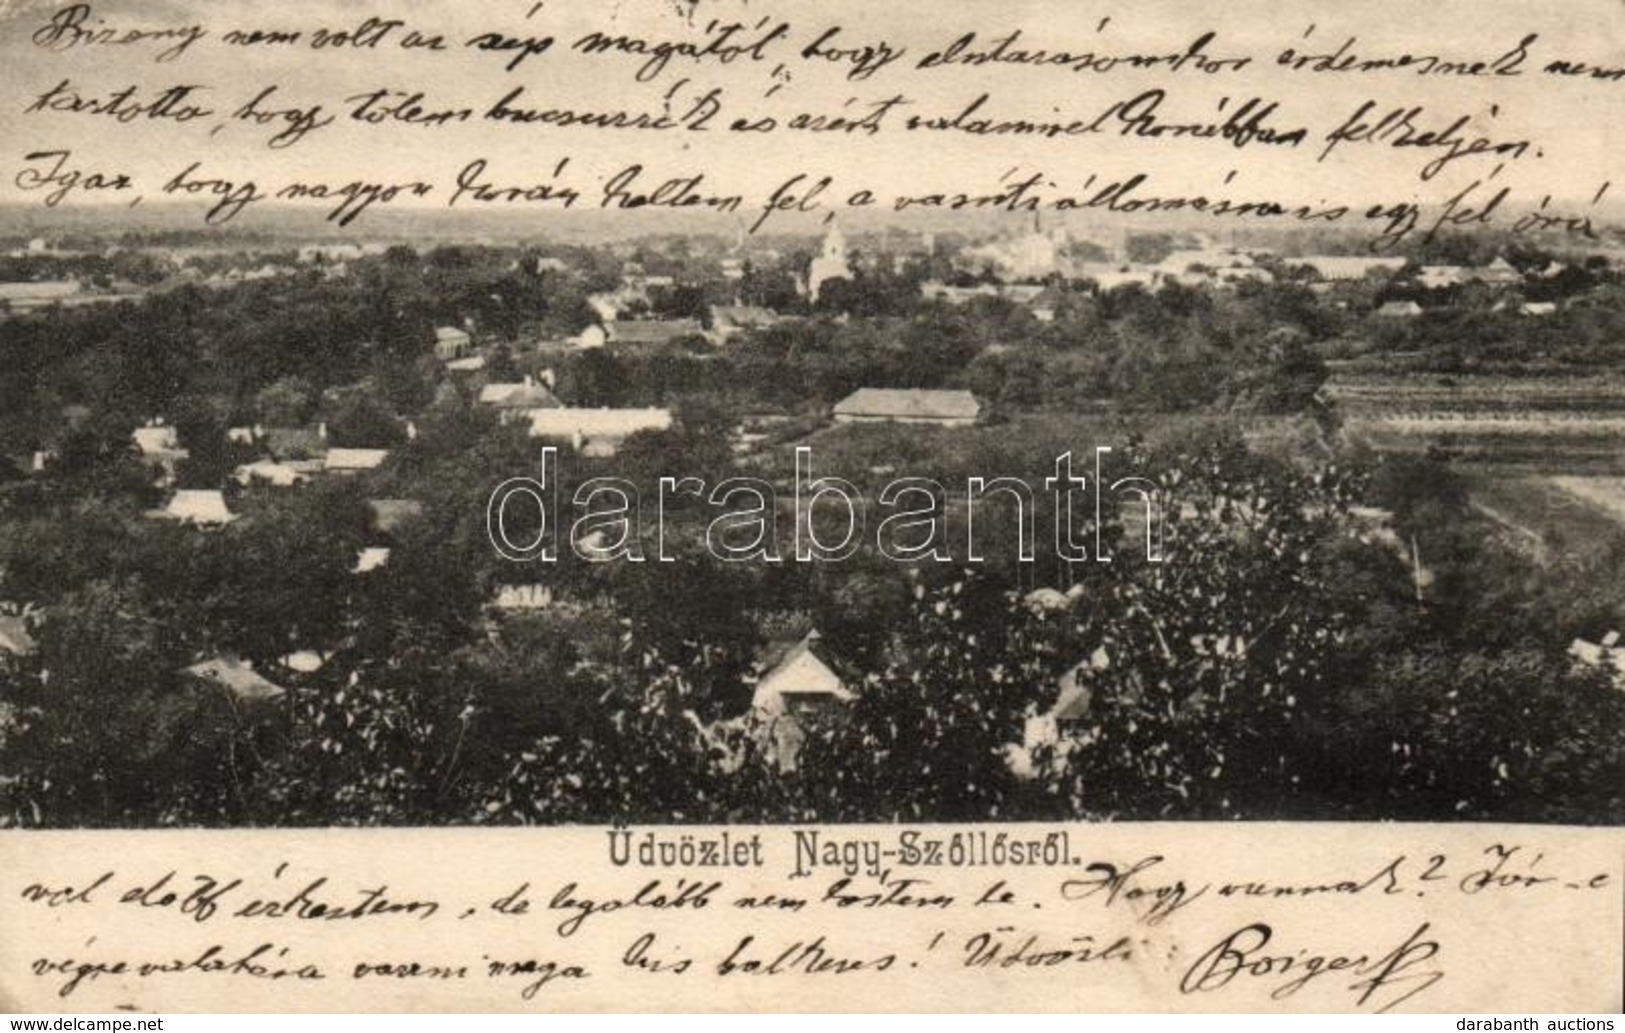 Bizony nem volt az szép magától, hogy elutazásomkor érdemesnek nem
tartotta, hogy tőlem bucsuzzék és azért valamivel korábban felkeljen.
Igaz, hogy nagyon korán keltem fel, a vasúti állomásra is egy fél órá
darabanth
Üdvözlet Nagy-Szőllősről.
val előbb érkeztem, de legalább nem késtem le. Hogy vannak? Jór-e
végre valahára varrni maga kis balkezes! Üdvözli:
darabanth-auctions.com
darabanth auctions